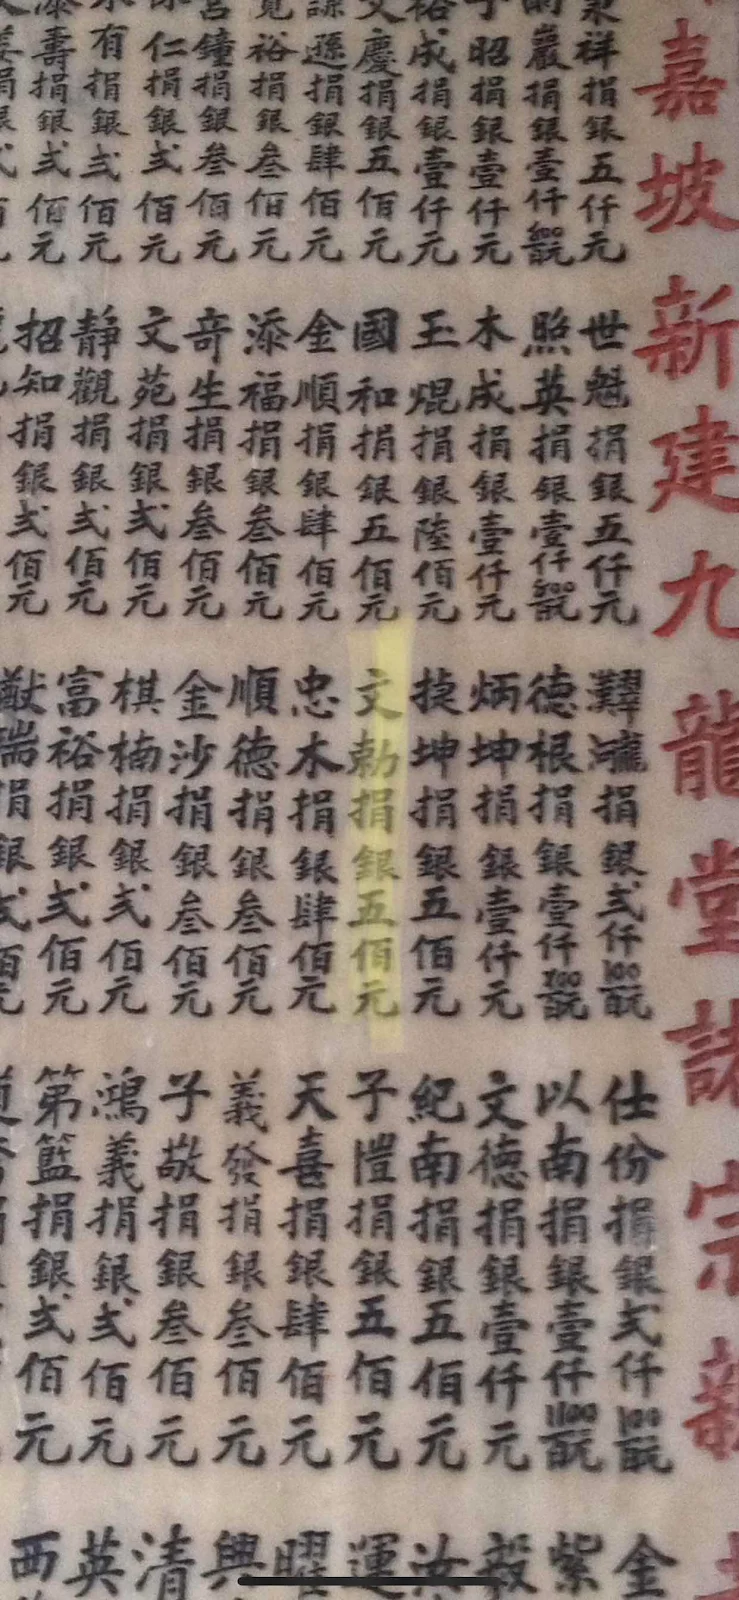 嘉坡新建九龍堂諸宗新
祥捐銀五仟元
巖捐銀壹仟
昭捐銀壹仟元
成捐銀壹仟元
慶捐銀五佰元
遜捐銀肆佰元
裕捐銀叁佰元
鐘捐銀叁佰元
仁捐銀弍佰元
有捐銀弍佰元
壽捐銀弍佰元
世魁捐銀五仟元
照英捐銀壹仟
木成捐銀壹仟元
玉焜捐銀陸佰元
國和捐銀五佰元
金順捐銀肆佰元
添福捐銀叁佰元
奇生捐銀叁佰元
文苑捐銀弍佰元
靜觀捐銀弍佰元
招知捐銀弍佰元
捐銀弍仟100百元
德根捐銀壹仟
炳坤捐銀壹仟元
捷坤捐銀五佰元
文勅捐銀五佰元
忠木捐銀肆佰元
順德捐銀叁佰元
金沙捐銀叁佰元
棋楠捐銀弍佰元
富裕捐銀弍佰元
猷瑞捐銀弍佰元
仕份捐銀弍仟100百元
以南捐銀壹仟1100百元
文德捐銀壹仟元
紀南捐銀五佰元
子愷捐銀五佰元
天喜捐銀肆佰元
義發捐銀叁佰元
子敬捐銀叁佰元
鴻義捐銀弍佰元
第籃捐銀弍佰元
金
紫
毅
汝
運
曜
興
清
英
西